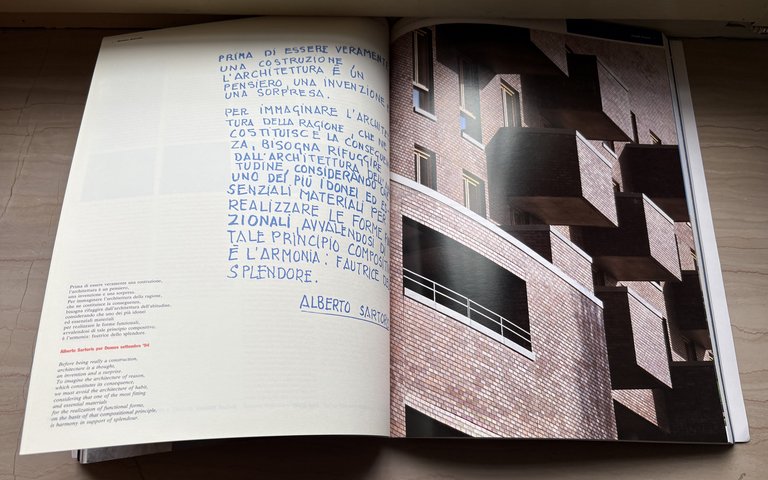 PRIMA DI ESSERE VERAMENTE
UNA COSTRUZIONE
L'ARCHITETTURA È UN
PENSIERO, UNA INVENZIONE
UNA SORPRESA.
PER IMMAGINARE L'ARCHITET
TURA DELLA RAGIONE, CHE NE
COSTITUISCE LA CONSEGUEN
ZA, BISOGNA RIFUGGIRE
DALL'ARCHITETTURA DELL'
TUDINE CONSIDERANDO
UNO DEI PIÙ IDONEI ED ES
SENZIALI MATERIALI PER
REALIZZARE LE FORME
ZIONALI, AVVALENDOSI
TALE PRINCIPIO COMPOSITI
È L'ARMONIA: FAUTRICE DE
SPLENDORE.
ALBERTO SARTORIS
Prima di essere veramente una costruzione,
l'architettura è un pensiero,
una invenzione e una sorpresa.
Per immaginare l'architettura della ragione,
che ne costituisce la conseguenza,
bisogna rifuggire dall'architettura dell'abitudine,
considerando che uno dei più idonei
ed essenziali materiali
per realizzare le forme funzionali,
avvalendosi di tale principio compositivo,
è l'armonia: fautrice dello splendore.
Alberto Sartoris per Domus settembre '94
Before being really a construction,
architecture is a thought,
an invention and a surprise.
To imagine the architecture of reason,
which constitutes its consequence,
we must avoid the architecture of habit,
considering that one of the most fitting
and essential materials
for the realization of functional forms,
on the basis of that compositional principle,
is harmony in support of splendour.